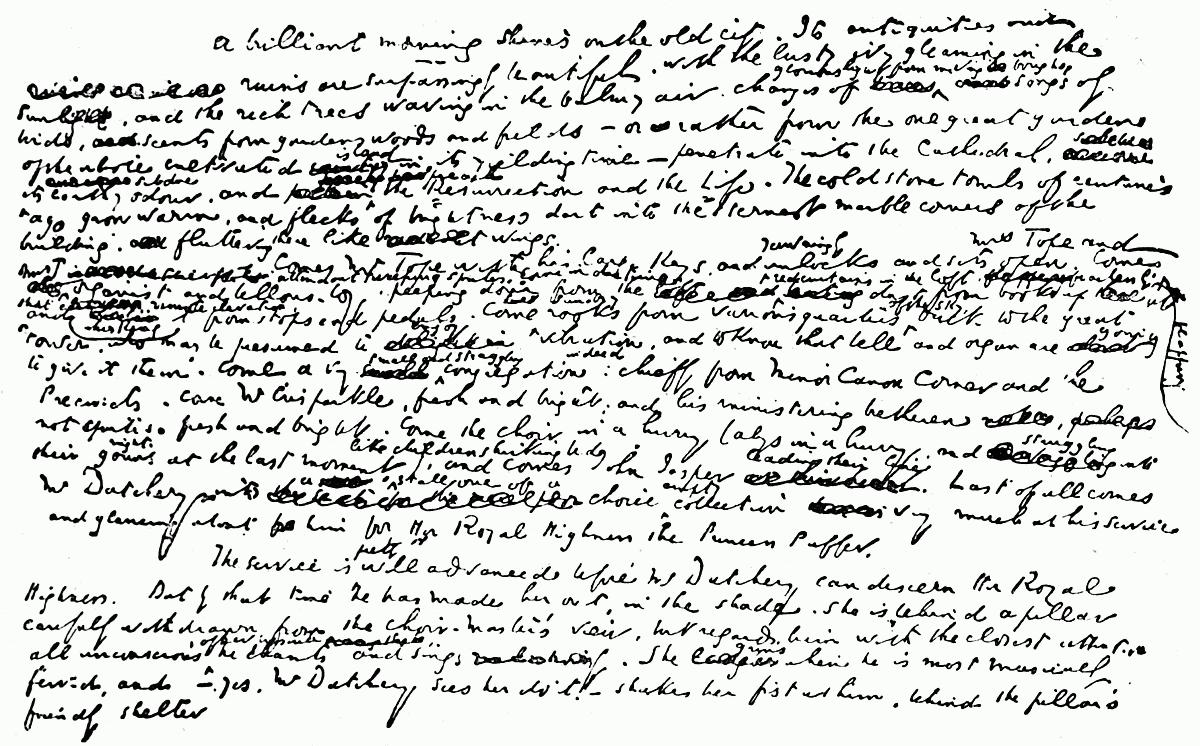 A brilliant morning shines on the old city. Its antiquities and
ruins are surpassingly beautiful, with the lusty ivy gleaming in the
sun, and the rich trees waving in the balmy air. Changes of glorious light from moving boughs, songs of
birds, scents from gardens, woods and fields — or rather from the one great garden
of the whole cultivated island in its yielding time — penetrate into the Cathedral,
subdue its earthy odour, and preach the Resurrection and the Life. The cold stone tombs of centuries
ago grow warm, and flecks of brightness dart into the sternest marble corners of the
building, fluttering there like wings.
Comes Mr Tope with his large keys, and yawningly unlocks and sets open. Come Mrs Tope and
attendant sweeping sprites. Come, in due time, organist and bellows-boy, peeping down from the red curtains in the loft, flapping dust from books up at that remote elevation,
and whisking it from stops and pedals. Come sundry rooks from various quarters of the sky, back to the great
tower, who may be presumed to enjoy vibration, and to know that bell and organ are going
to give it them. Come a very small and straggling congregation indeed: chiefly from Minor Canon Corner and the
Precincts. Come Mr Crisparkle, fresh and bright, and his ministering brethren, perhaps
not quite so fresh and bright. Come the choir in a hurry (always in a hurry, and struggling into
their nightgowns at the last moment, like children shirking bed), and comes John Jasper leading their line. Last of all comes
Mr Datchery into a stall, one of a choice empty collection very much at his service
and glancing about him for Her Royal Highness the Princess Puffer.
The service is pretty well advanced before Mr Datchery can discern Her Royal
Highness. But by that time he has made her out, in the shade. She is behind a pillar
carefully withdrawn from the choir-master's view, but regards him with the closest attention
all unconscious of her presence he chants and sings. She grins when he is most musically
fervid, and — yes, Mr Datchery sees her do it! — shakes her fist at him, behind the pillar's
friendly shelter